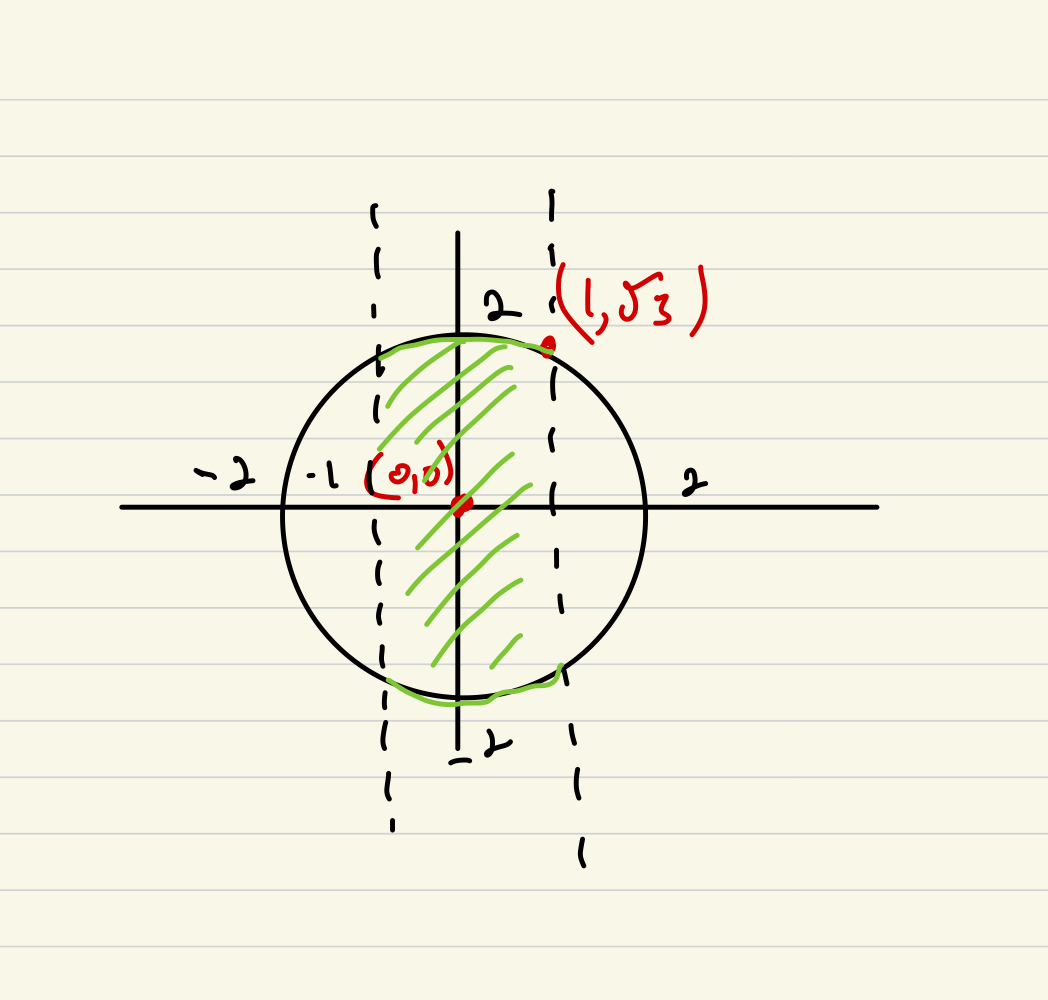 2 (1,√3)
-2 -1 (0,0) 2
-2